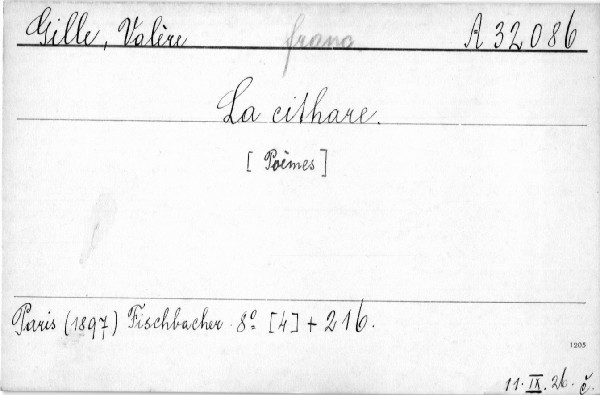 Gille, Valère franc A 32086
La cithare.
[Poèmes]
Paris (1897) Fischbacher. 8° [4] + 216.
1205
11. IX. 26. č.